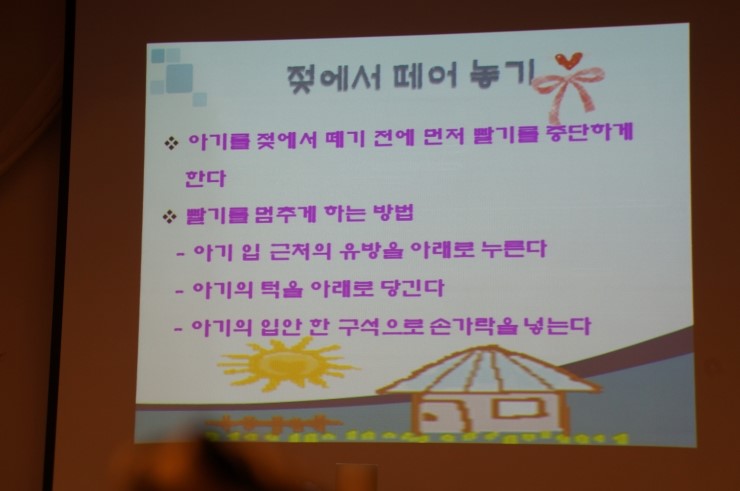 젖에서 떼어 놓기
❖ 아기를 젖에서 떼기 전에 먼저 빨기를 중단하게
한다
❖ 빨기를 멈추게 하는 방법
- 아기 입 근처의 유방을 아래로 누른다
- 아기의 턱을 아래로 당긴다
- 아기의 입안 한 구석으로 손가락을 넣는다